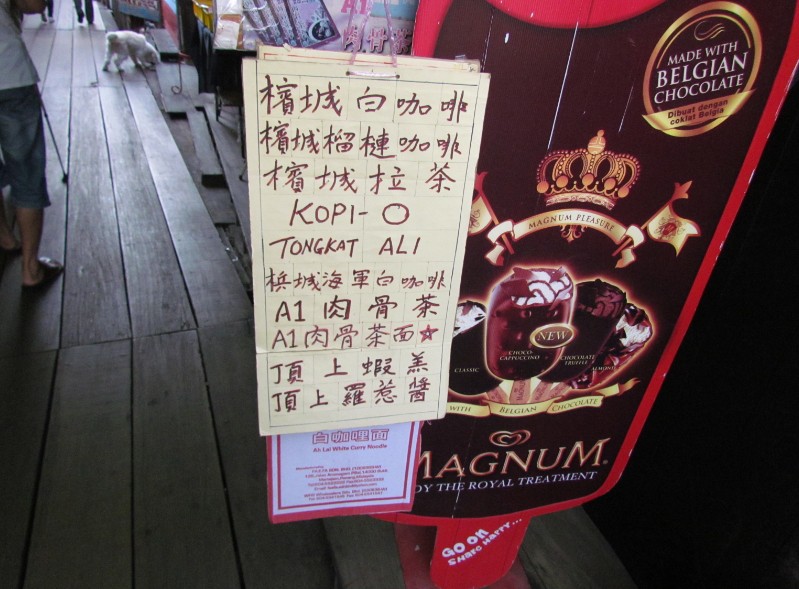 檳城白咖啡
檳城榴槤咖啡
檳城拉茶
KOPI-O
TONGKAT ALI
梹城海軍白咖啡
A1肉骨茶
A1肉骨茶面★
頂上蝦羔
頂上羅惹醬
白咖哩面
Ah Lai White Curry Noodle
MADE WITH
BELGIAN
CHOCOLATE
Dibuat dengan
coklat Belgia
MAGNUM PLEASURE
NEW
CLASSIC
CHOCO
CAPPUCCINO
CHOCOLATE
TRUFFLE
ALMOND
WITH BELGIAN CHOCOLATE
MAGNUM
OY THE ROYAL TREATMENT
GO ON
SHARE HAPPY...
A1
肉骨茶